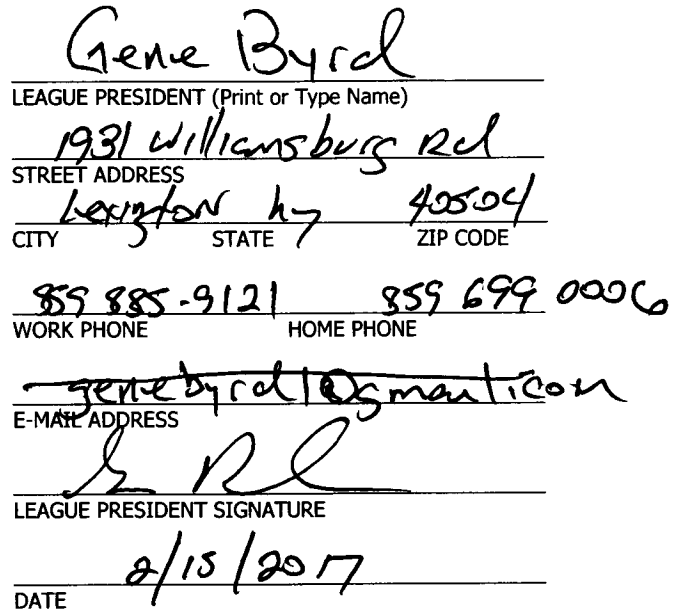 Gene Byrd
LEAGUE PRESIDENT (Print or Type Name)
1931 Williamsburg Rd
STREET ADDRESS
Lexington Ky 40504
CITY STATE ZIP CODE
859 885-9121 859 699 0006
WORK PHONE HOME PHONE
genebyrd1@gmail.com
E-MAIL ADDRESS
LEAGUE PRESIDENT SIGNATURE
2/15/2017
DATE